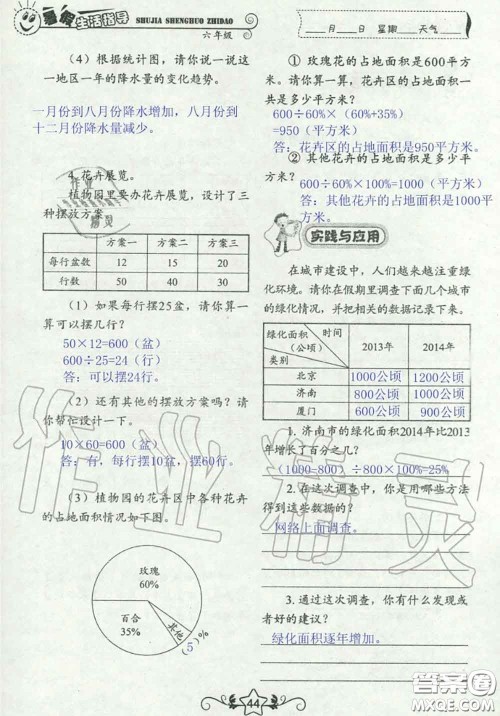 暑假生活指导
SHUJIA SHENGHUO ZHIDAO
六年级
（4）根据统计图，请你说一说这
一地区一年的降水量的变化趋势。
一月份到八月份降水增加，八月份到
十二月份降水量减少。
4. 花卉展览。
植物园里要办花卉展览，设计了三
种摆放方案。
方案一 方案二 方案三
每行盆数 12 15 20
行数 50 40 30
（1）如果每行摆25盆，请你算一
算可以摆几行？
50×12=600（盆）
600÷25=24（行）
答：可以摆24行。
（2）还有其他的摆放方案吗？请
你帮忙设计一下。
10×60=600（盆）
答：有，每行摆10盆，摆60行。
（3）植物园的花卉区中各种花卉
的占地面积情况如下图。
玫瑰
60%
百合
35%
其他
（5）%
___月___日 星期___天气___
① 玫瑰花的占地面积是600平
方米。请你算一算，花卉区的面积一
共是多少平方米？
600÷60%×（60%+35%）
=950（平方米）
答：花卉区的占地面积是950平方米。
② 其他花卉的占地面积是多少平
方米？
600÷60%×100%=1000（平方米）
答：其他花卉的占地面积是1000平
方米。
实践与应用
在城市建设中，人们越来越注重绿
化环境。请你在假期里调查下面几个城
市的绿化情况，并把相关的数据记录下来。
绿化面积（公顷） 时间 类别 2013年 2014年
北京 1000公顷 1200公顷
济南 800公顷 1000公顷
厦门 600公顷 900公顷
1. 济南市的绿化面积2014年比2013
年增长了百分之几？
（1000-800）÷800×100%=25%
2. 在这次调查中，你是用哪些方法
得到这些数据的？
网络上面调查。
3. 通过这次调查，你有什么发现或
者好的建议？
绿化面积逐年增加。
44
作业精灵
答案圈
MXQE.COM